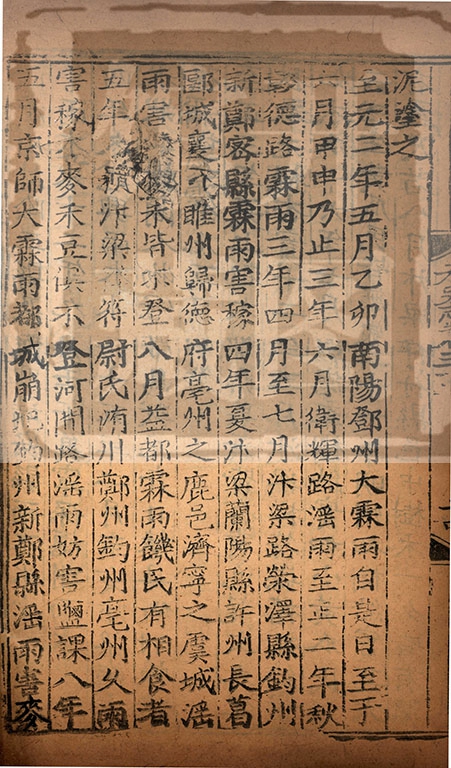 泥塗之
至元二年五月乙卯南陽鄧州大霖雨自是日至于
六月甲申乃止三年六月衛輝路滛雨至正二年秋
彰德路霖雨三年四月至七月汴梁路滎澤縣鈞州
新鄭密縣霖雨害稼四年夏汴梁蘭陽縣許州長葛
郾城襄城睢州歸德府亳州之鹿邑濟寧之虞城滛
雨害禾皆不登八月益都霖雨饑民有相食者
五年積汴梁祥符尉氏洧川鄭州鈞州亳州久雨
害稼二麥禾豆俱不登河間路滛雨妨害鹽課八年
五月京師大霖雨都城崩圮鈞州新鄭縣滛雨害麥